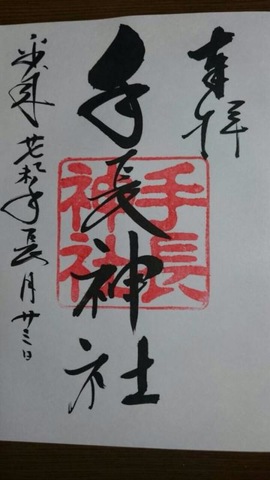 奉拝
手長神社
手長
神社
平成廿九年長月廿三日